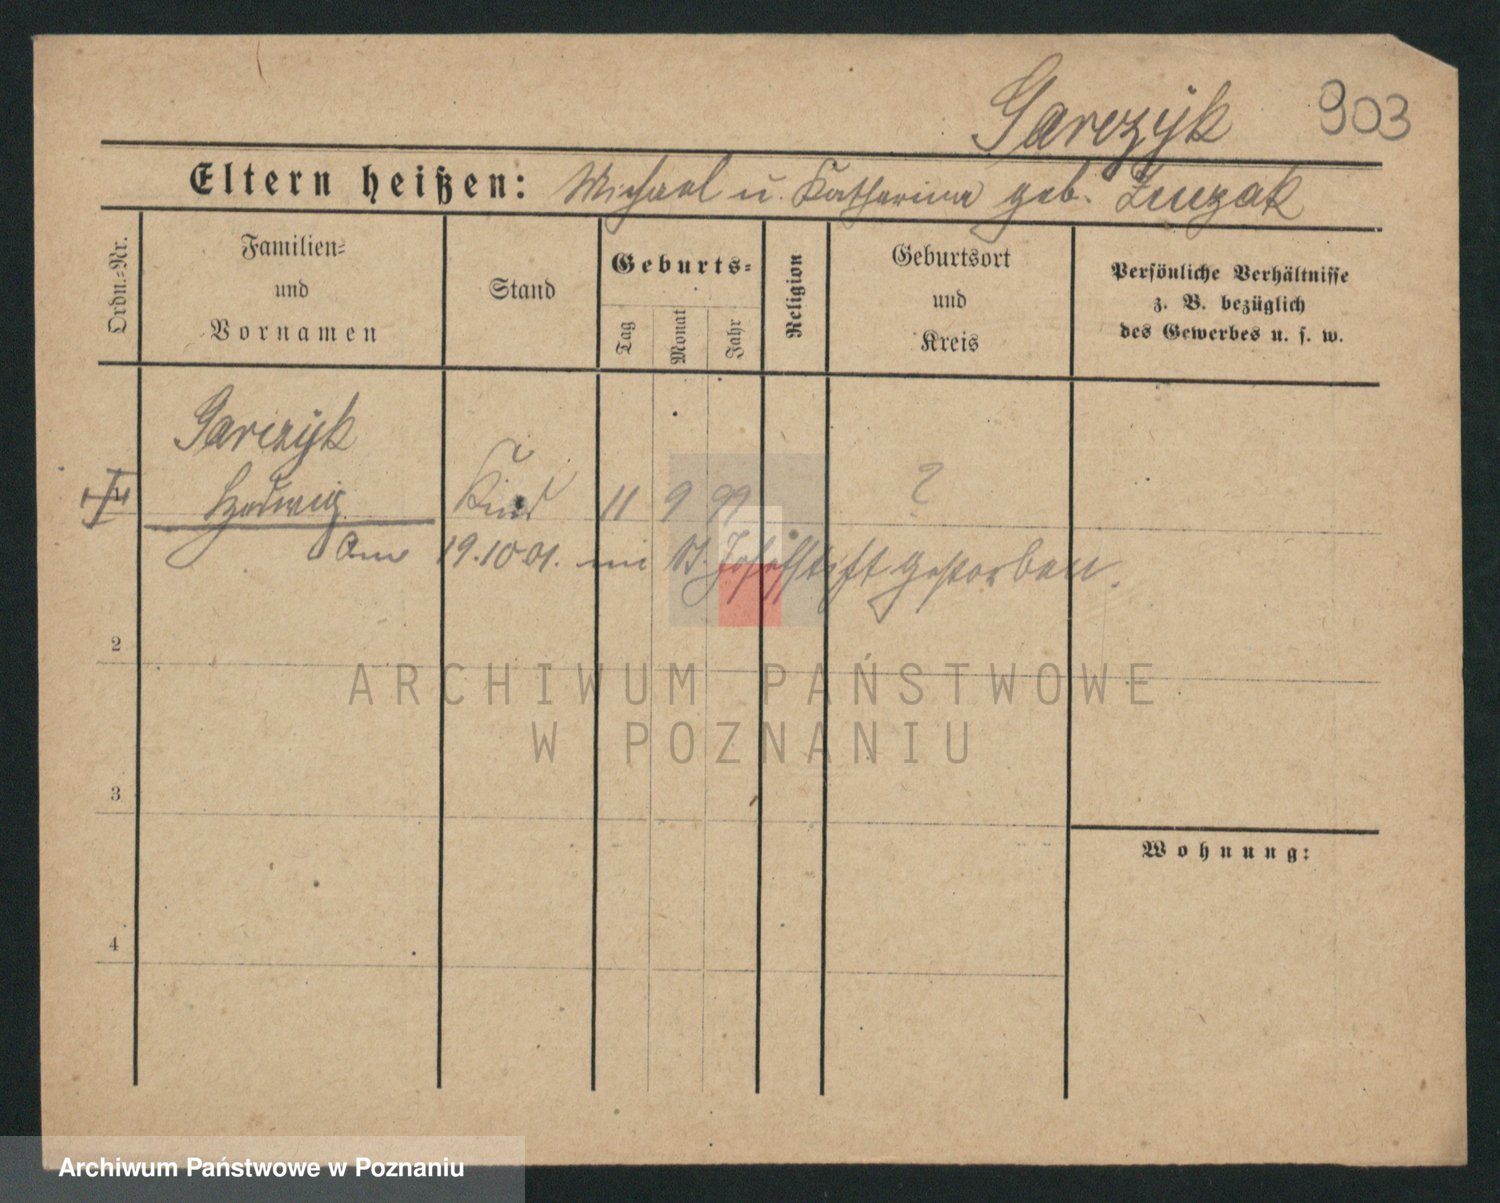 Garczyk 903
Eltern heißen: Michael u. Katharina geb.
Ordn.-Nr.
Familien-
und
Vornamen
Stand
Geburts-
Tag
Monat
Jahr
Religion
Geburtsort
und
Kreis
Persönliche Verhältnisse
z. B. bezüglich
des Gewerbes u. s. w.
Garczyk
Hedwig Kind 11 9 99 ?
Am 19.10 01. im St. Josefstift gestorben.
2
3
4
Wohnung:
ARCHIWUM PAŃSTWOWE
W POZNANIU
Archiwum Państwowe w Poznaniu